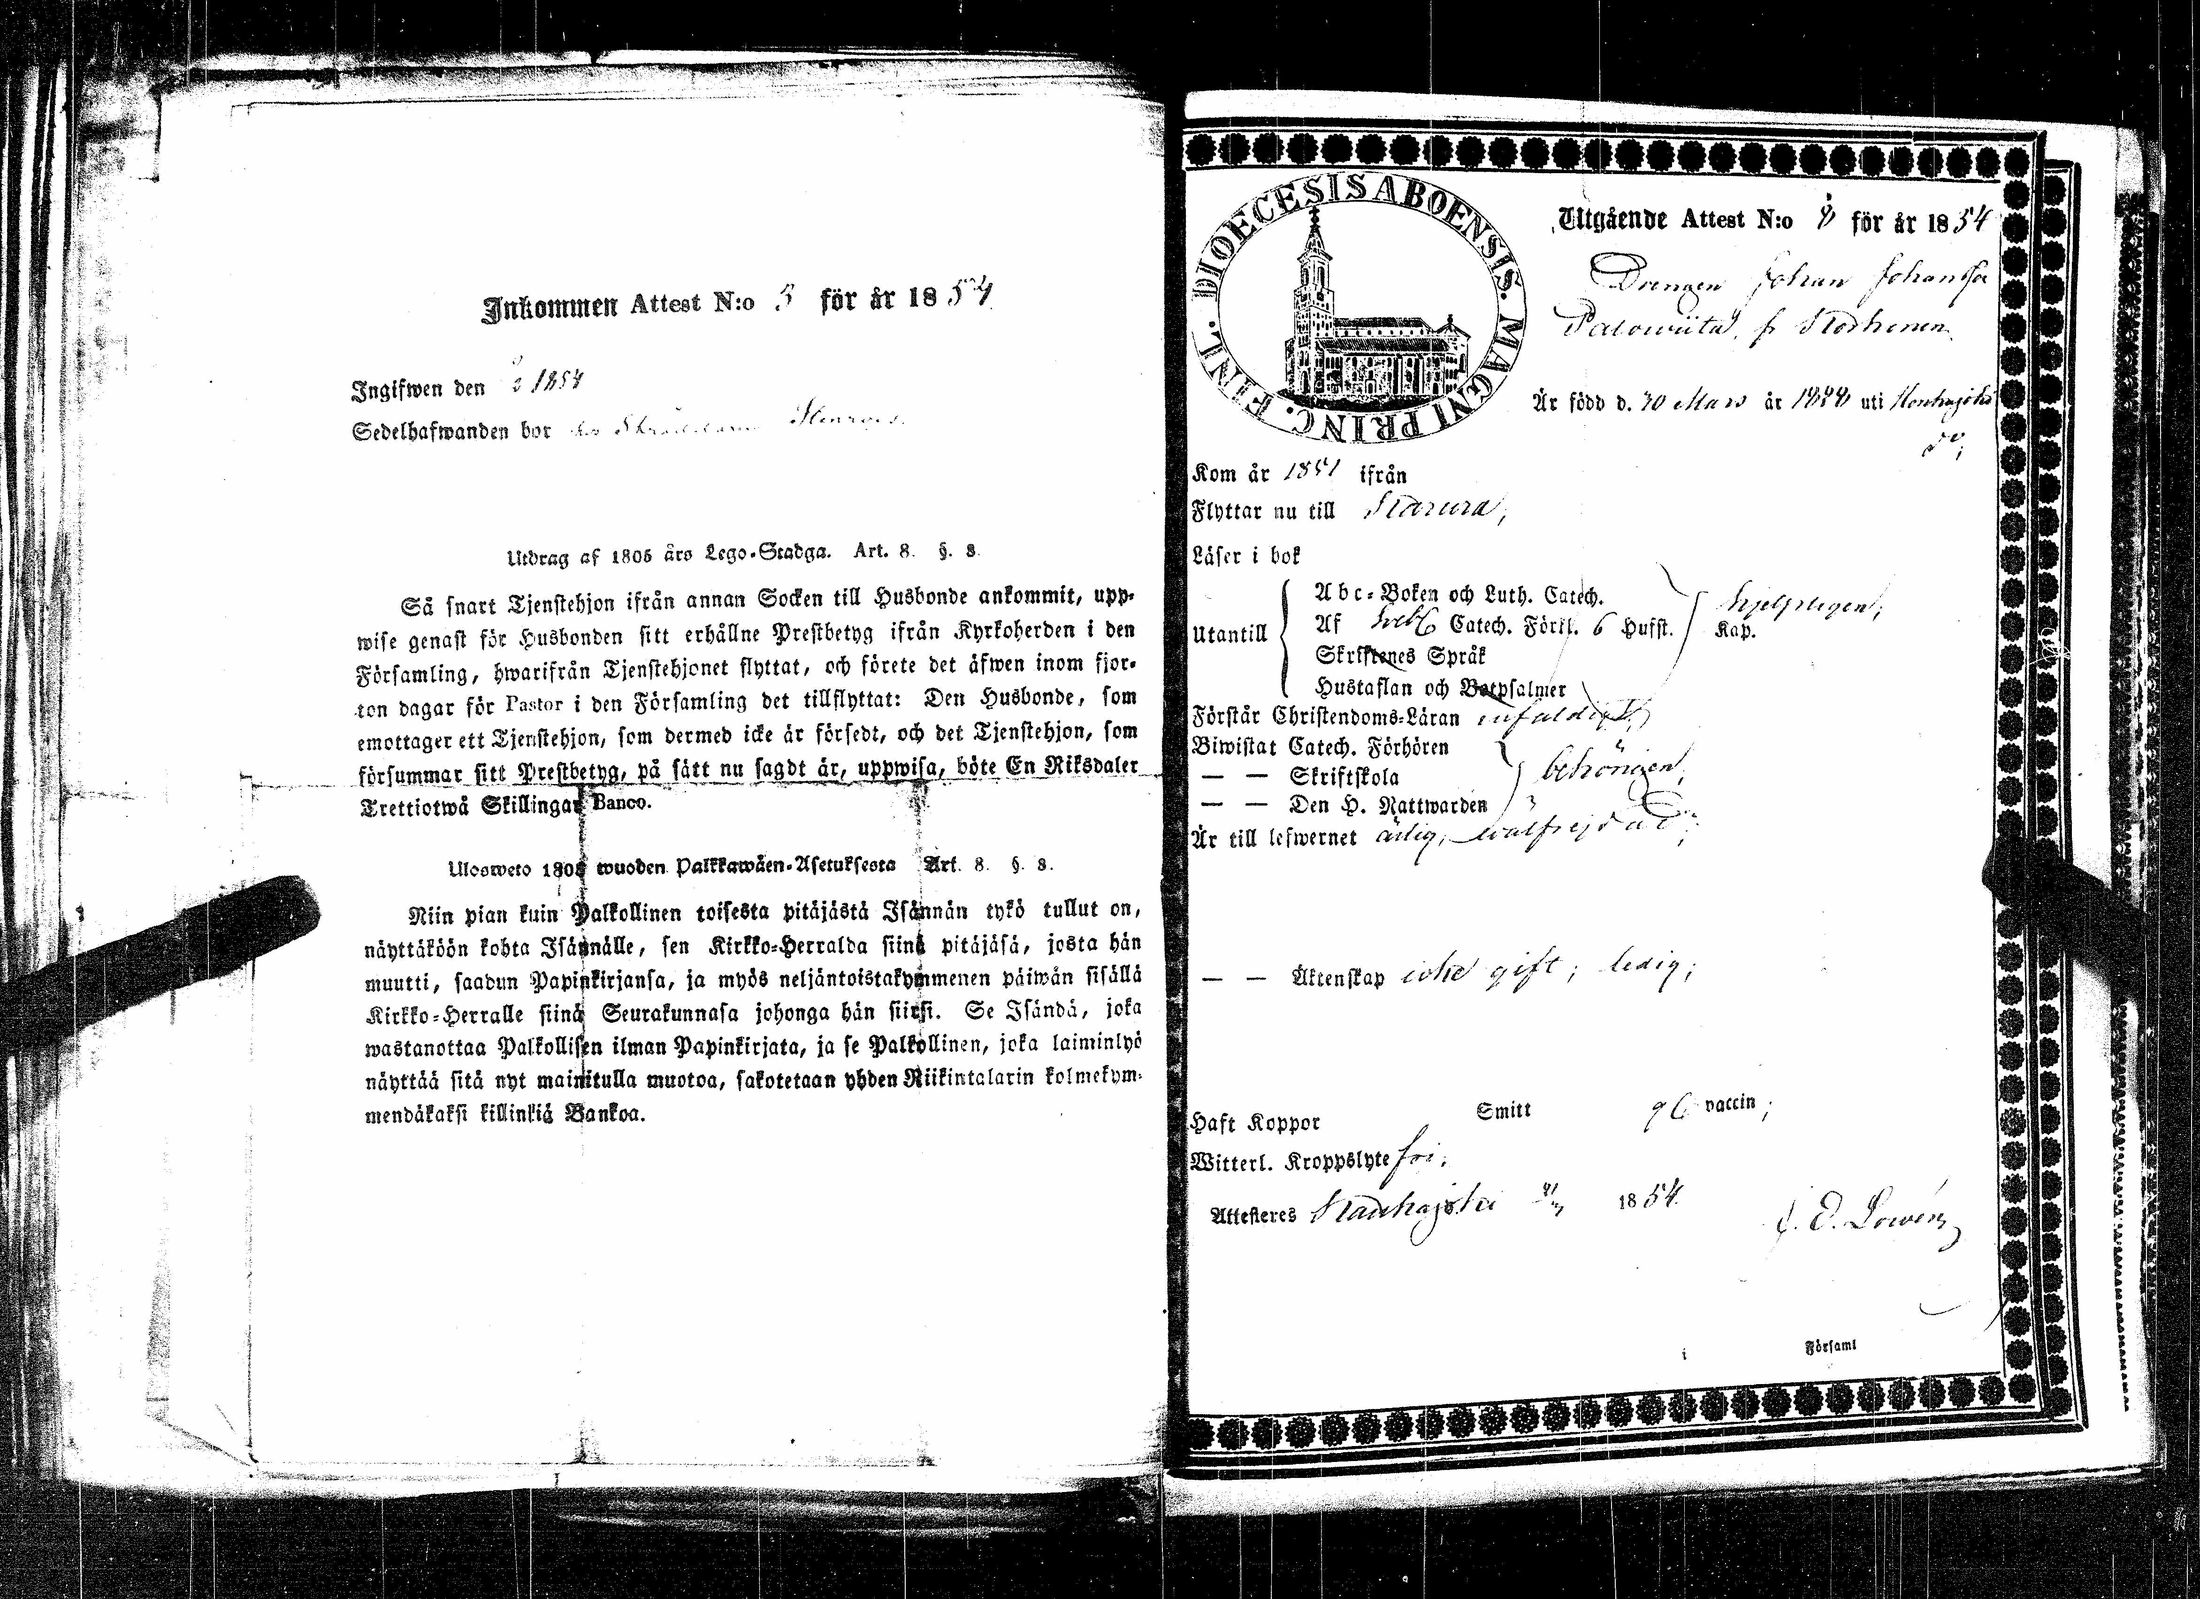 Inkommen Attest N:o 3 för år 1854
Ingifwen den 1854
Sedelhafwanden bor
Utdrag af 1805 års Lego-Stadga. Art. 8. §. 8.
Så snart Tjenstehjon ifrån annan Socken till Husbonde ankommit, upp-
wise genast för Husbonden sitt erhållne Prestbetyg ifrån Kyrkoherden i den
Församling, hwarifrån Tjenstehjonet flyttat, och förete det äfwen inom fjor-
ton dagar för Pastor i den Församling det tillflyttat: Den Husbonde, som
emottager ett Tjenstehjon, som dermed icke är försedt, och det Tjenstehjon, som
försummar sitt Prestbetyg, på sätt nu sagdt är, uppwisa, böte En Riksdaler
Trettiotwå Skillingar Banco.
Ulosweto 1805 wuoden Palkkawäen-Asetuksesta Art. 8. §. 8.
Niin pian kuin Palkollinen toisesta pitäjästä Isännän tykö tullut on,
näyttäköön kohta Isännälle, sen Kirkko-Herralda siinä pitäjäsä, josta hän
muutti, saadun Papinkirjansa, ja myös neljäntoistakymmenen päiwän sisällä
Kirkko-Herralle siinä Seurakunnasa johonga hän siirsi. Se Isändä, joka
wastanottaa Palkollisen ilman Papinkirjata, ja se Palkollinen, joka laiminlyö
näyttää sitä nyt mainitulla muotoa, sakotetaan yhden Riikintalarin kolmekym-
mendäkaksi killinkiä Bankoa.
DIOECESIS ABOENSIS. MAGNI PRINC. FINL.
Utgående Attest N:o 8 för år 1854
Drengen Johan Johansson
Är född d. 30 Mars år 1828 uti
Kom år 1851 ifrån
Flyttar nu till
Läser i bok
Utantill
Abc-Boken och Luth. Catech.
Af Catech. Förkl. 6 Hufst. Kap.
Skriftenes Språk
Hustaflan och Botpsalmer
hjelpligen;
Förstår Christendoms-Läran enfaldigt;
Biwistat Catech. Förhören
— — Skriftskola
— — Den H. Nattwarden
behörigen;
Är till lefwernet ärlig, wälfrejdad;
— — Äktenskap icke gift; ledig;
Haft Koppor Smitt vaccin;
Witterl. Kroppslyte fri;
Attesteres 1854.
i Församl